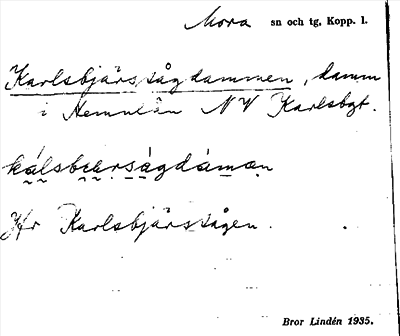 Mora sn och tg, Kopp. l.
Karlsbjärssågdammen, damm
i Hemulån NV Karlsbgt.
kálsbærságdáman
Jfr Karlsbjärssågen.
Bror Lindén 1935.